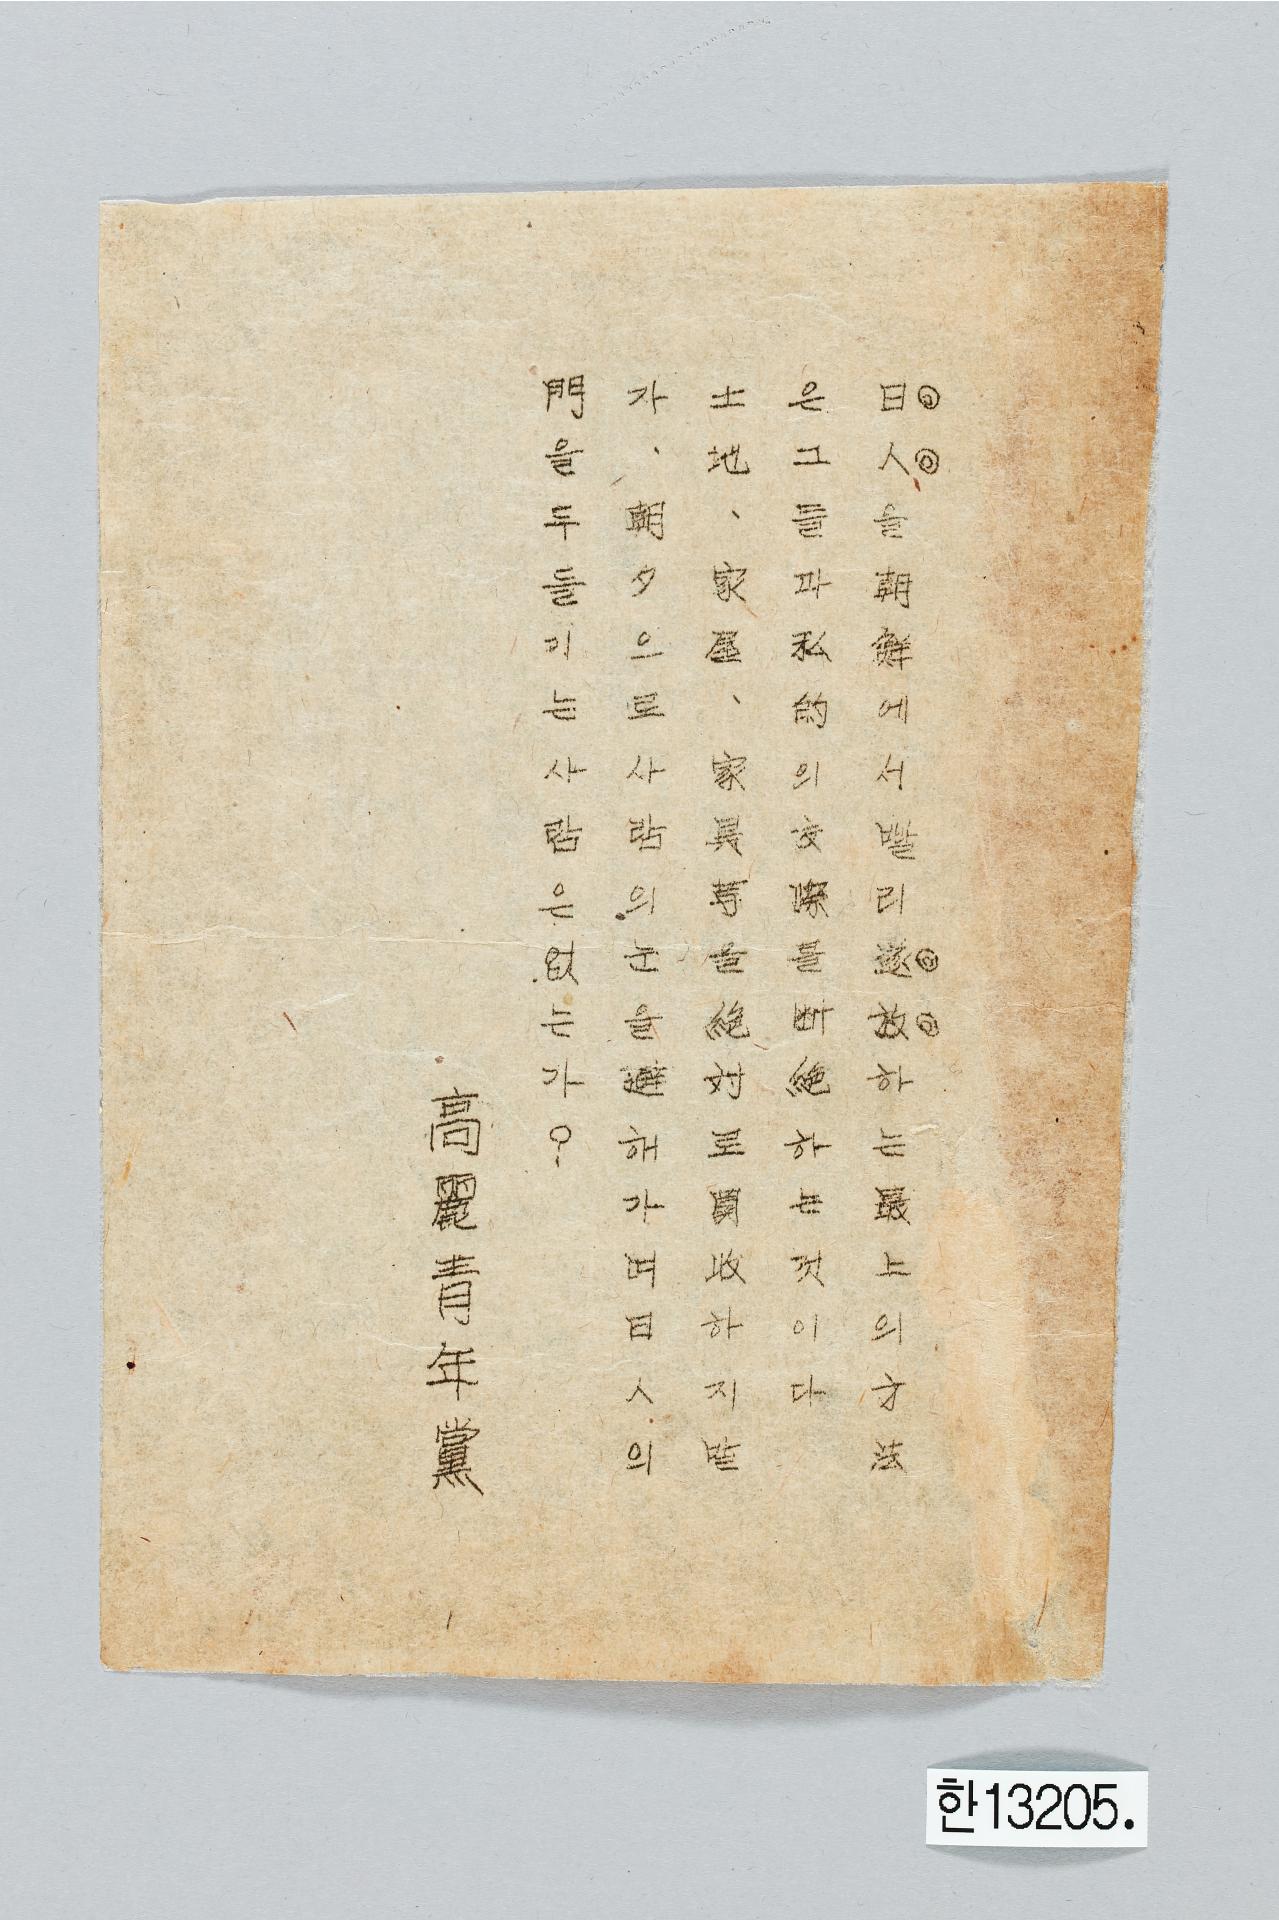 日人을朝鮮에서빨리逐放하는最上의方法
은그들과私的의交際를断絶하는것이다
土地、家屋、家具等을絶対로買收하지말
가、朝夕으로사람의눈을避해가며日人의
門을두들기는사람은없는가?
高麗青年黨
한13205.